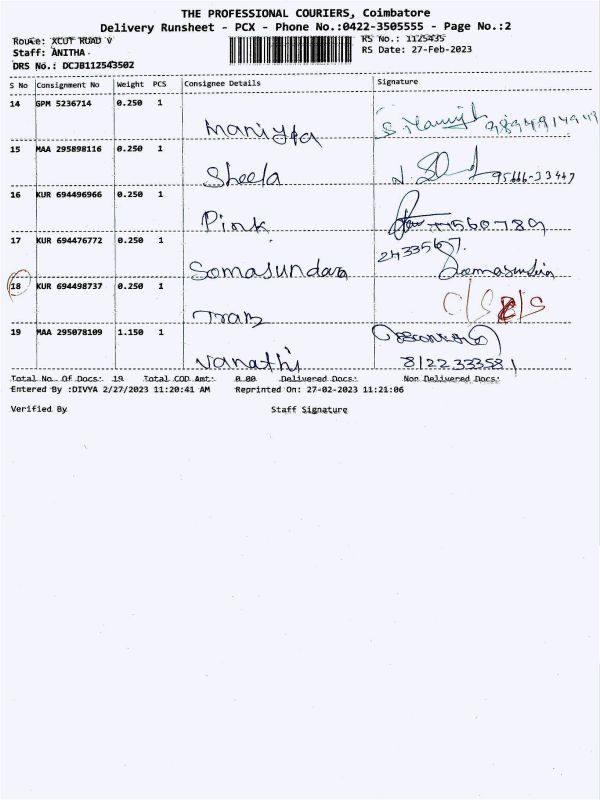 THE PROFESSIONAL COURIERS, Coimbatore
Delivery Runsheet - PCX - Phone No.:0422-3505555 - Page No.:2
Route: XCUT ROAD V
RS No.: 1125435
Staff: ANITHA
RS Date: 27-Feb-2023
DRS No.: DCJB112543502
S No Consignment No Weight PCS Consignee Details Signature
14 GPM 5236714 0.250 1
Maniypa
15 MAA 295898116 0.250 1
Sheela 95666-33447
16 KUR 694496966 0.250 1
Pink
17 KUR 694476772 0.250 1
24335657.
Somasundara
18 KUR 694498737 0.250 1
19 MAA 295078109 1.150 1
Vanathi 8122333581
Total No. Of Docs: 19 Total COD Amt: 0.00 Delivered Docs: Non Delivered Docs:
Entered By :DIVYA 2/27/2023 11:20:41 AM Reprinted On: 27-02-2023 11:21:06
Verified By Staff Signature